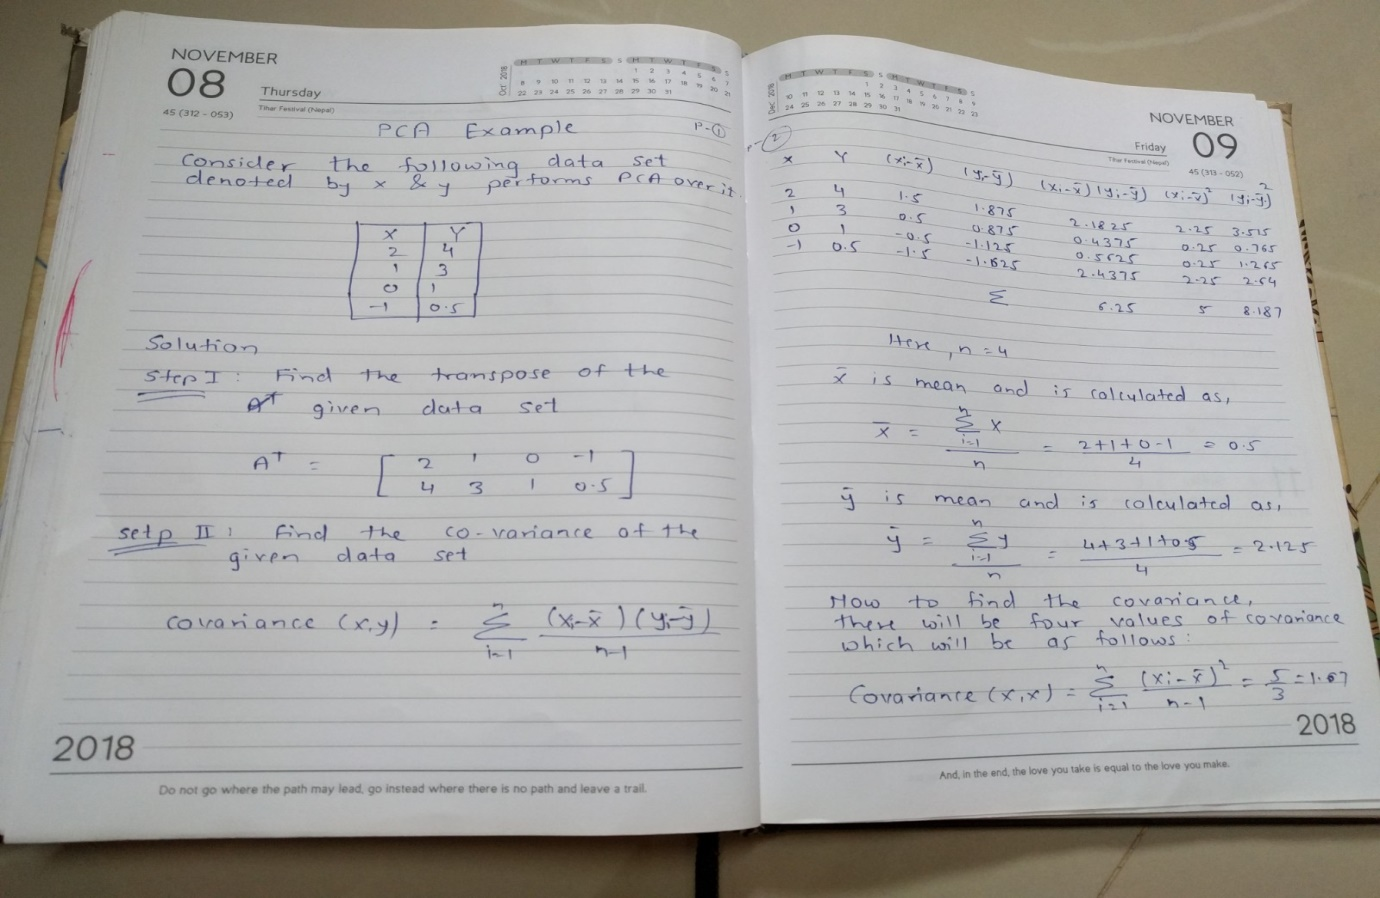 NOVEMBER
08
Thursday
45 (312 - 053)
Tihar Festival (Nepal)
Oct' 2018
M T W T F S S M T W T F S S
1 2 3 4 5 6 7
8 9 10 11 12 13 14 15 16 17 18 19 20 21
22 23 24 25 26 27 28 29 30 31
PCA Example
P-①
Consider the following data set
denoted by x & y performs PCA over it.
X Y
2 4
1 3
0 1
-1 0.5
Solution
Step I : Find the transpose of the
given data set
A^T = [ 2 1 0 -1
4 3 1 0.5 ]
setp II : Find the co-variance of the
given data set
covariance (x,y) = n Σ i=1 (xi-x̄)(yi-ȳ) / n-1
2018
Do not go where the path may lead, go instead where there is no path and leave a trail.
Dec' 2018
M T W T F S S M T W T F S S
1 2 3 4 5 6 7 8 9
10 11 12 13 14 15 16 17 18 19 20 21 22 23
24 25 26 27 28 29 30 31
NOVEMBER
09
Friday
Tihar Festival (Nepal)
45 (313 - 052)
P-②
X Y (xi-x̄) (yi-ȳ) (xi-x̄)(yi-ȳ) (xi-x̄)² (yi-ȳ)²
2 4 1.5 1.875 2.1825 2.25 3.515
1 3 0.5 0.875 0.4375 0.25 0.765
0 1 -0.5 -1.125 0.5625 0.25 1.265
-1 0.5 -1.5 -1.625 2.4375 2.25 2.64
Σ 6.25 5 8.187
Here, n = 4
x̄ is mean and is calculated as,
x̄ = n Σ i=1 x / n = 2+1+0-1 / 4 = 0.5
ȳ is mean and is calculated as,
ȳ = n Σ i=1 y / n = 4+3+1+0.5 / 4 = 2.125
Now to find the covariance,
there will be four values of covariance
which will be as follows:
Covariance (x,x) = n Σ i=1 (xi-x̄)² / n-1 = 5/3 = 1.67
2018
And, in the end, the love you take is equal to the love you make.